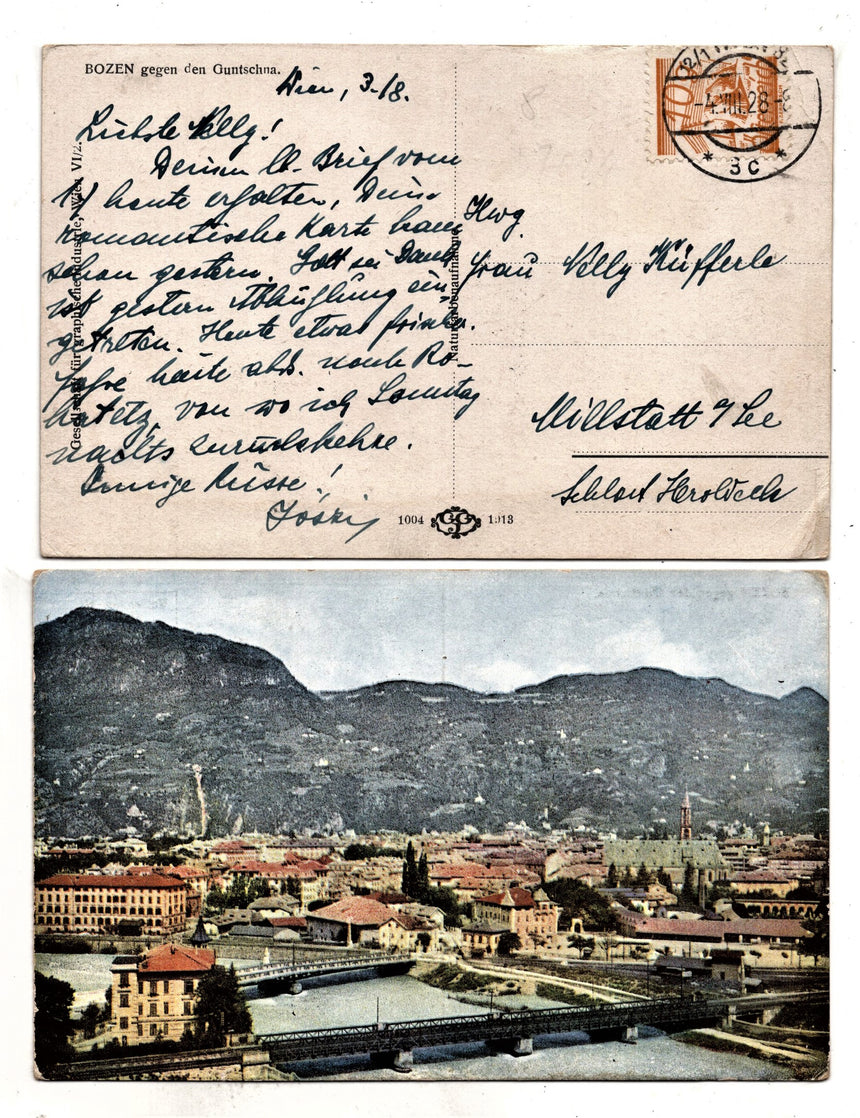 BOZEN gegen den Guntschna.
Wien, 3./8.
Liebste Nelly!
Deinen lb. Brief vom
1./ heute erhalten, Deine
romantische Karte kam
schon gestern. Gott sei Dank
ist gestern Abkühlung ein-
getreten. Heute etwas frischer.
Fahre heute abds. nach Ro-
hatetz, von wo ich Sonntag
nachts zurückkehre.
Innige Küsse!
Jöszi
Gesellschaft für graphische Industrie, Wien VI/2.
Naturfarbenaufnahme
1004 GGI 1913
-4.VIII.28-8
* 3c *
40
Hwg.
Frau Nelly Küfferle
Millstatt a/See
Schloss Heroldeck